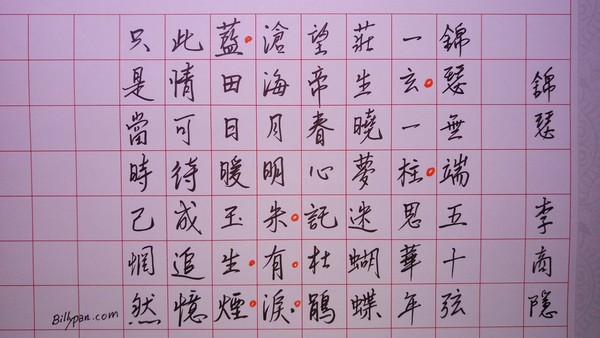 錦瑟 李商隱
錦瑟無端五十弦
一玄一柱思華年
莊生曉夢迷蝴蝶
望帝春心託杜鵑
滄海月明朱有淚
藍田日暖玉生煙
此情可待成追憶
只是當時已惘然
Billypan.com